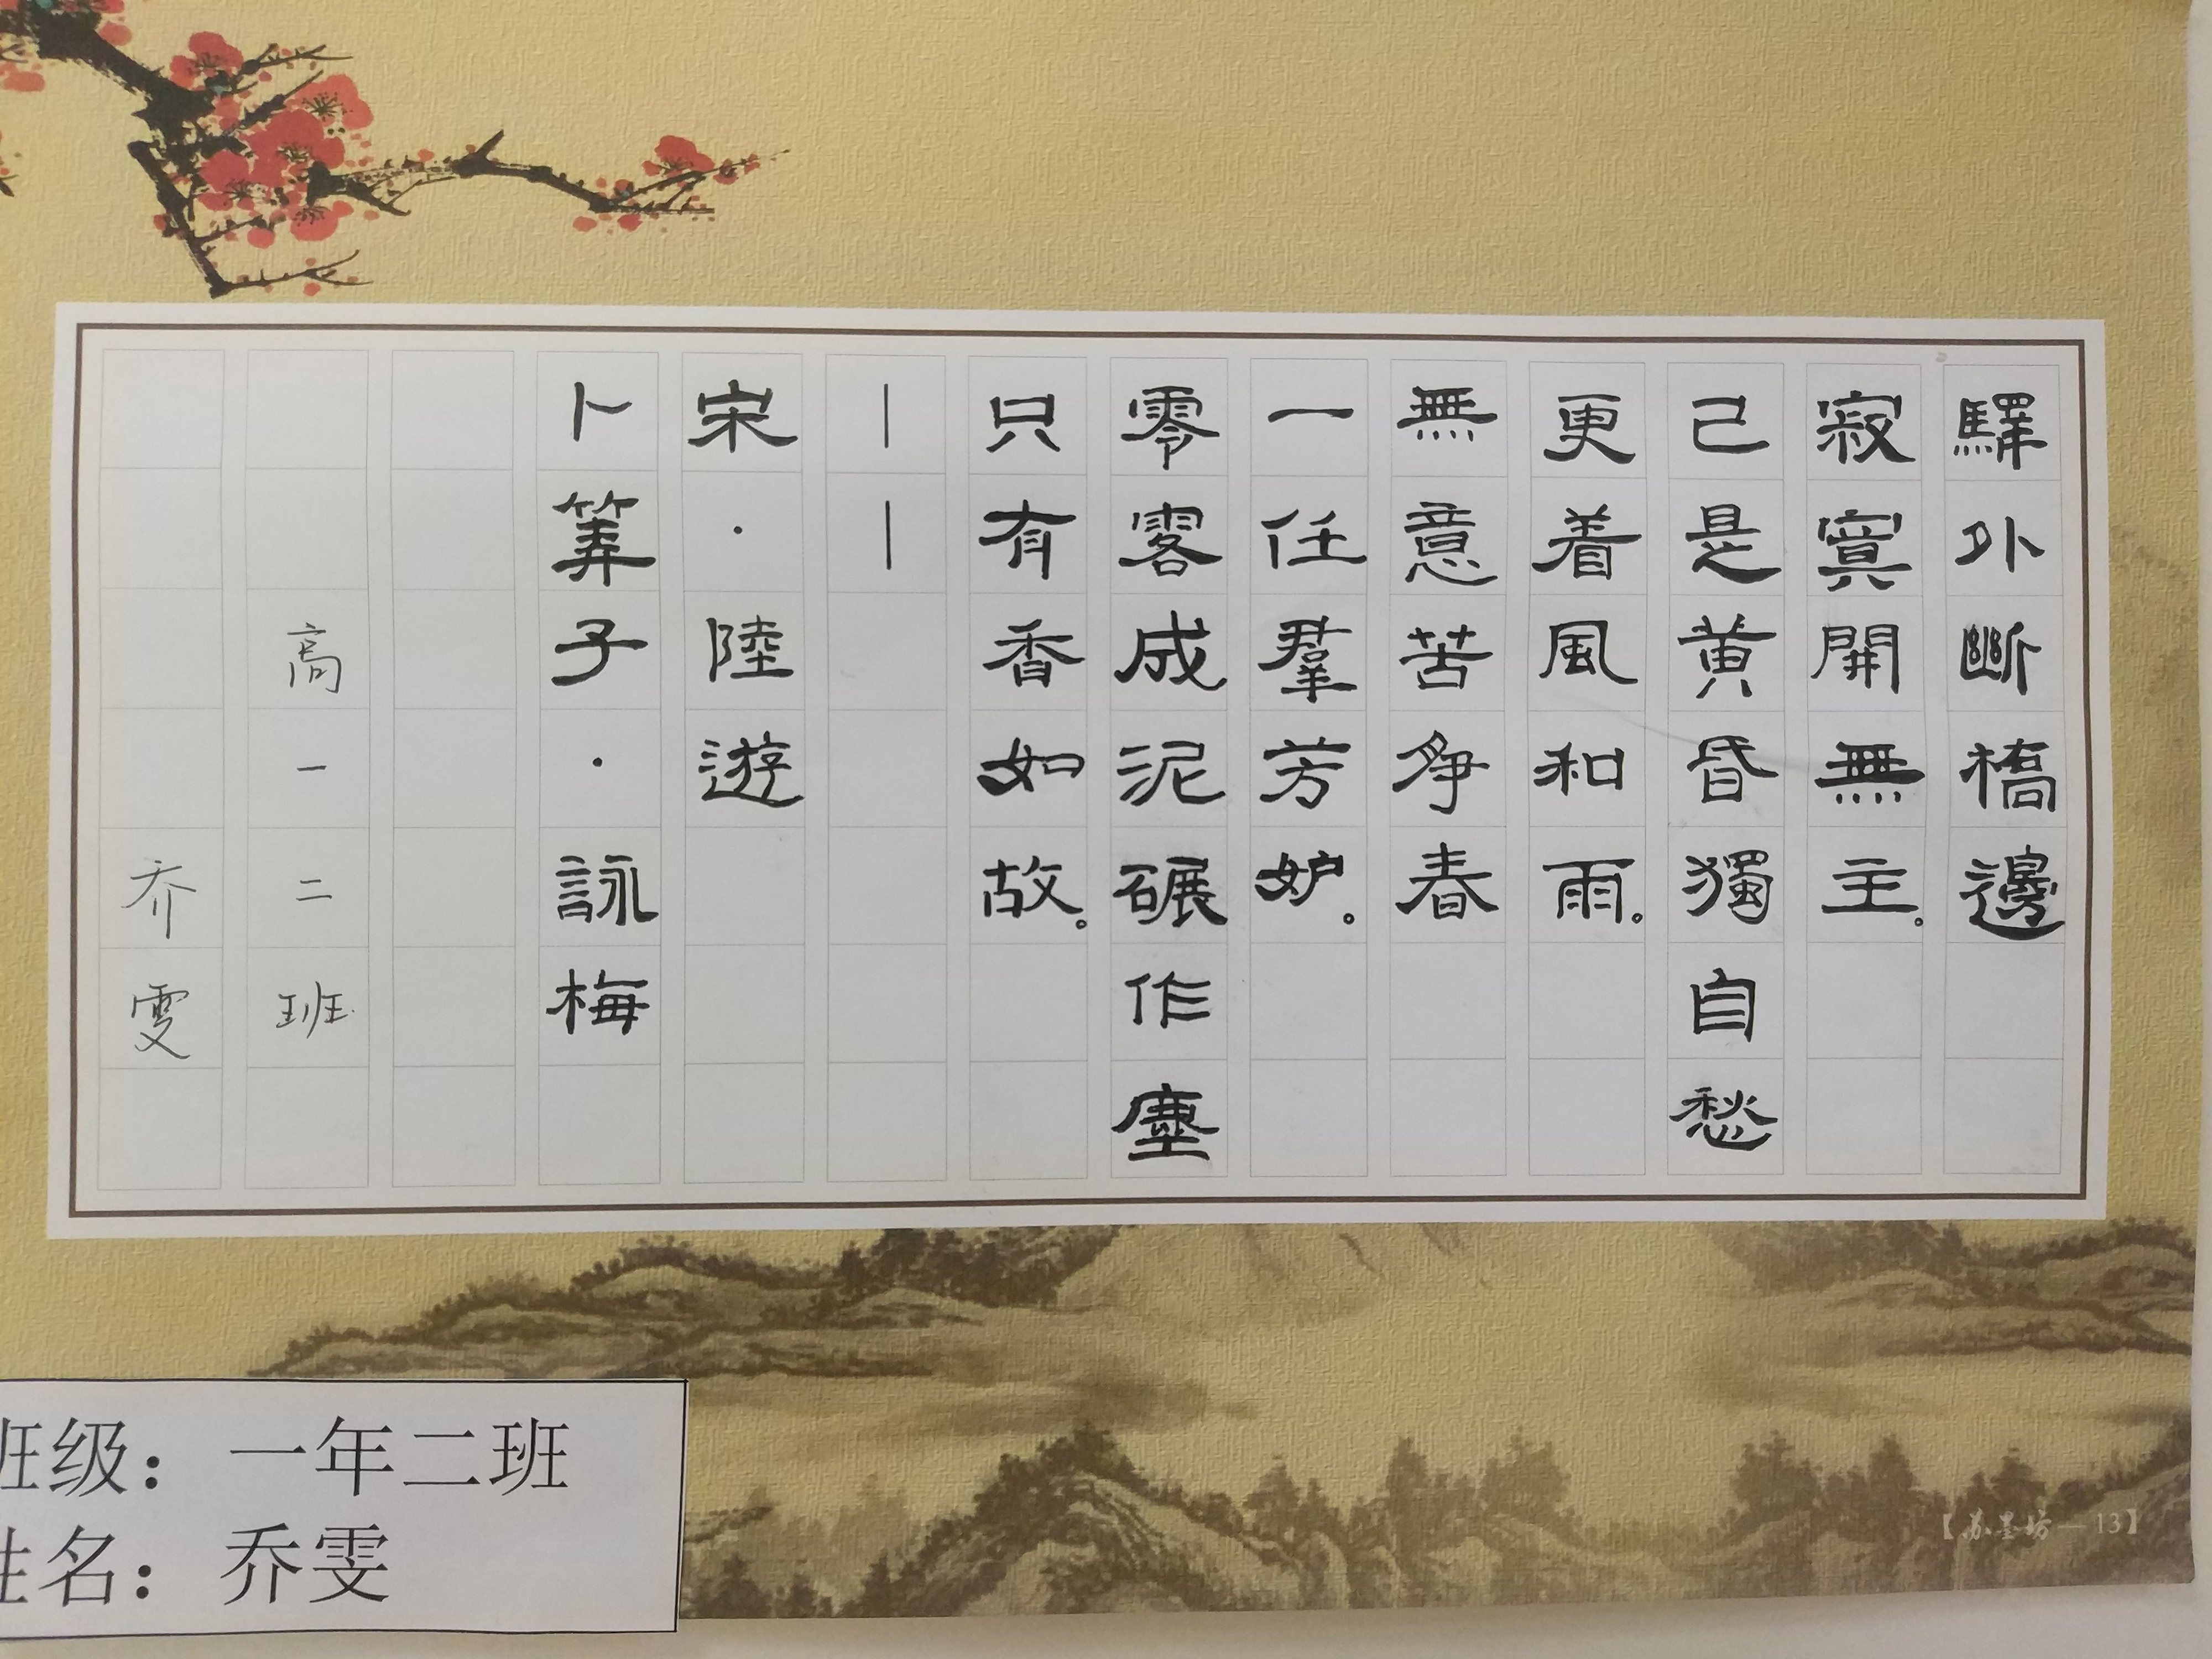 驛外斷橋邊
寂寞開無主。
己是黄昏獨自愁
更着風和雨。
無意苦爭春
一任羣芳妒。
零落成泥碾作塵
只有香如故。
——
宋·陸遊
卜算子·詠梅
高一二班
乔雯
班级：一年二班
姓名：乔雯
【苏墨坊—13】